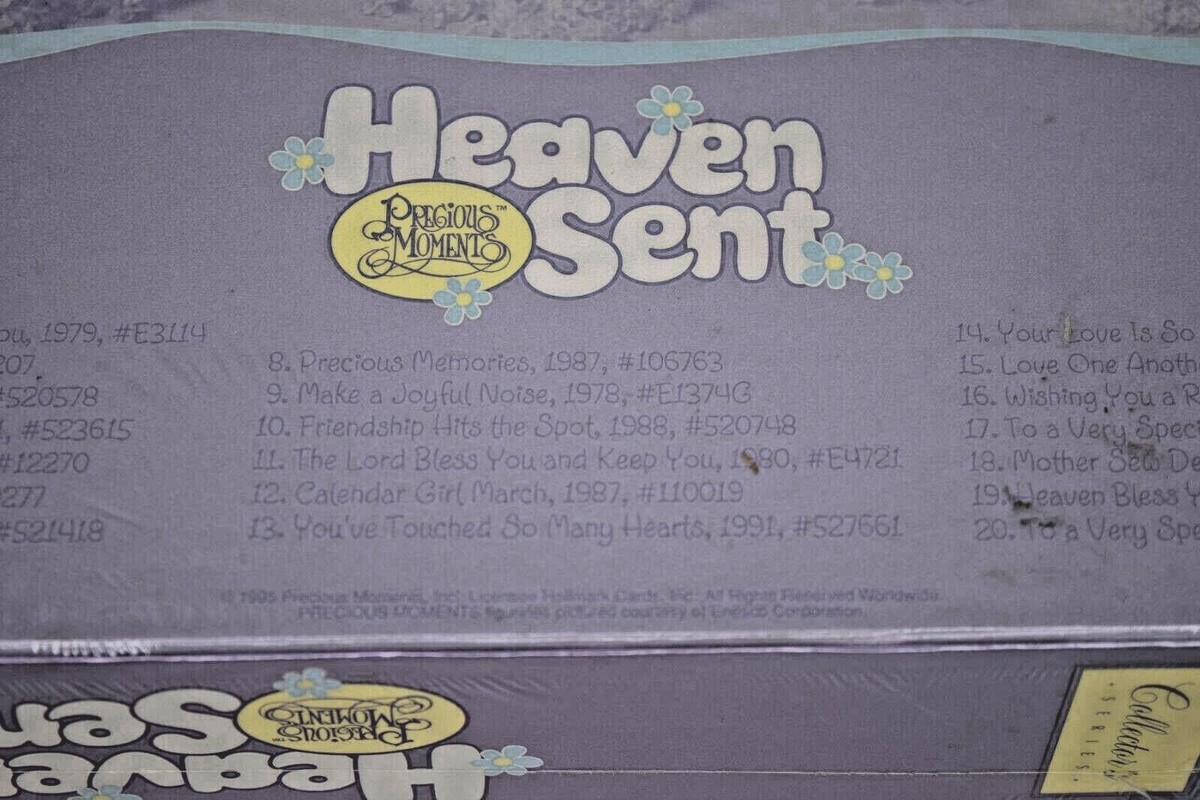 Heaven
Sent
PRECIOUS
MOMENTS™
ou, 1979, #E3114
207
#520578
1, #523615
#12270
277
#521418
8. Precious Memories, 1987, #106763
9. Make a Joyful Noise, 1978, #E1374G
10. Friendship Hits the Spot, 1988, #520748
11. The Lord Bless You and Keep You, 1980, #E4721
12. Calendar Girl March, 1987, #110019
13. You've Touched So Many Hearts, 1991, #527661
14. Your Love Is So
15. Love One Anoth
16. Wishing You a R
17. To a Very Speci
18. Mother Sew De
19. Heaven Bless Y
20. To a Very Spe
© 1995 Precious Moments, Inc. Licensee Hallmark Cards, Inc. All Rights Reserved Worldwide.
PRECIOUS MOMENTS figurines pictured courtesy of Enesco Corporation.
Heaven
Sen
PRECIOUS
MOMENTS™
Collector's
SERIES